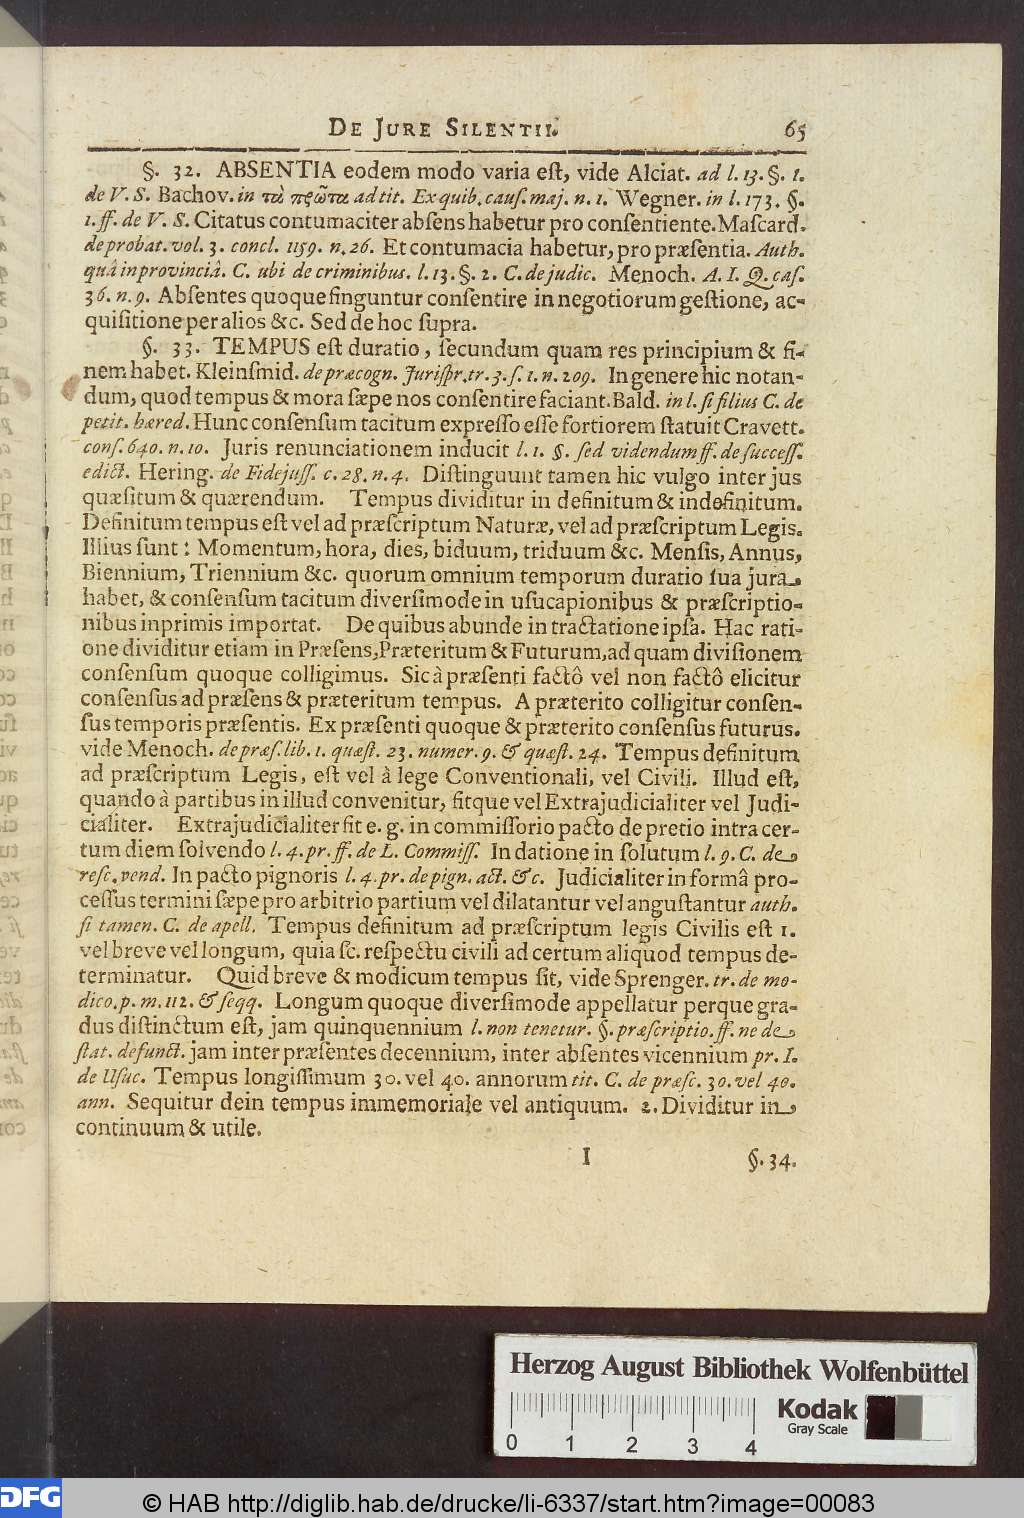 DE JURE SILENTII. 65
§. 32. ABSENTIA eodem modo varia eſt, vide Alciat. ad l. 13. §. 1.
de V. S. Bachov. in τὰ πρῶτα ad tit. Ex quib. cauſ. maj. n. 1. Wegner. in l. 173. §.
1. ff. de V. S. Citatus contumaciter abſens habetur pro conſentiente. Maſcard.
de probat. vol. 3. concl. 1159. n. 26. Et contumacia habetur, pro præſentia. Auth.
quâ in provinciâ. C. ubi de criminibus. l. 13. §. 2. C. de judic. Menoch. A. I. Q. caſ.
36. n. 9. Abſentes quoque finguntur conſentire in negotiorum geſtione, ac-
quiſitione per alios &c. Sed de hoc ſupra.
§. 33. TEMPUS eſt duratio, ſecundum quam res principium & fi-
nem habet. Kleinſmid. de præcogn. Juriſpr. tr. 3. ſ. 1. n. 209. In genere hic notan-
dum, quod tempus & mora ſæpe nos conſentire faciant. Bald. in l. ſi filius C. de
petit. hæred. Hunc conſenſum tacitum expreſſo eſſe fortiorem ſtatuit Cravett.
conſ. 640. n. 10. Juris renunciationem inducit l. 1. §. ſed videndum ff. de ſucceſſ.
edict. Hering. de Fidejuſſ. c. 28. n. 4. Diſtinguunt tamen hic vulgo inter jus
quæſitum & quærendum. Tempus dividitur in definitum & indefinitum.
Definitum tempus eſt vel ad præſcriptum Naturæ, vel ad præſcriptum Legis.
Illius ſunt: Momentum, hora, dies, biduum, triduum &c. Menſis, Annus,
Biennium, Triennium &c. quorum omnium temporum duratio ſua jura
habet, & conſenſum tacitum diverſimode in uſucapionibus & præſcriptio-
nibus inprimis importat. De quibus abunde in tractatione ipſa. Hac rati-
one dividitur etiam in Præſens, Præteritum & Futurum, ad quam diviſionem
conſenſum quoque colligimus. Sic à præſenti factô vel non factô elicitur
conſenſus ad præſens & præteritum tempus. A præterito colligitur conſen-
ſus temporis præſentis. Ex præſenti quoque & præterito conſenſus futurus.
vide Menoch. de præſ. lib. 1. quæſt. 23. numer. 9. & quæſt. 24. Tempus definitum
ad præſcriptum Legis, eſt vel à lege Conventionali, vel Civili. Illud eſt,
quando à partibus in illud convenitur, fitque vel Extrajudicialiter vel Judi-
cialiter. Extrajudicialiter fit e. g. in commiſſorio pacto de pretio intra cer-
tum diem ſolvendo l. 4. pr. ff. de L. Commiſſ. In datione in ſolutum l. 9. C. de
reſc. vend. In pacto pignoris l. 4. pr. de pign. act. &c. Judicialiter in formâ pro-
ceſſus termini ſæpe pro arbitrio partium vel dilatantur vel anguſtantur auth.
ſi tamen. C. de apell. Tempus definitum ad præſcriptum legis Civilis eſt 1.
vel breve vel longum, quia ſc. reſpectu civili ad certum aliquod tempus de-
terminatur. Quid breve & modicum tempus ſit, vide Sprenger. tr. de mo-
dico. p. m. 112. & ſeqq. Longum quoque diverſimode appellatur perque gra-
dus diſtinctum eſt, jam quinquennium l. non tenetur. §. præſcriptio. ff. ne de
ſtat. defunct. jam inter præſentes decennium, inter abſentes vicennium pr. I.
de Uſuc. Tempus longiſſimum 30. vel 40. annorum tit. C. de præſc. 30. vel 40.
ann. Sequitur dein tempus immemoriale vel antiquum. 2. Dividitur in
continuum & utile.
I §. 34.
Herzog August Bibliothek Wolfenbüttel
0 1 2 3 4
Kodak
Gray Scale
DFG © HAB http://diglib.hab.de/drucke/li-6337/start.htm?image=00083